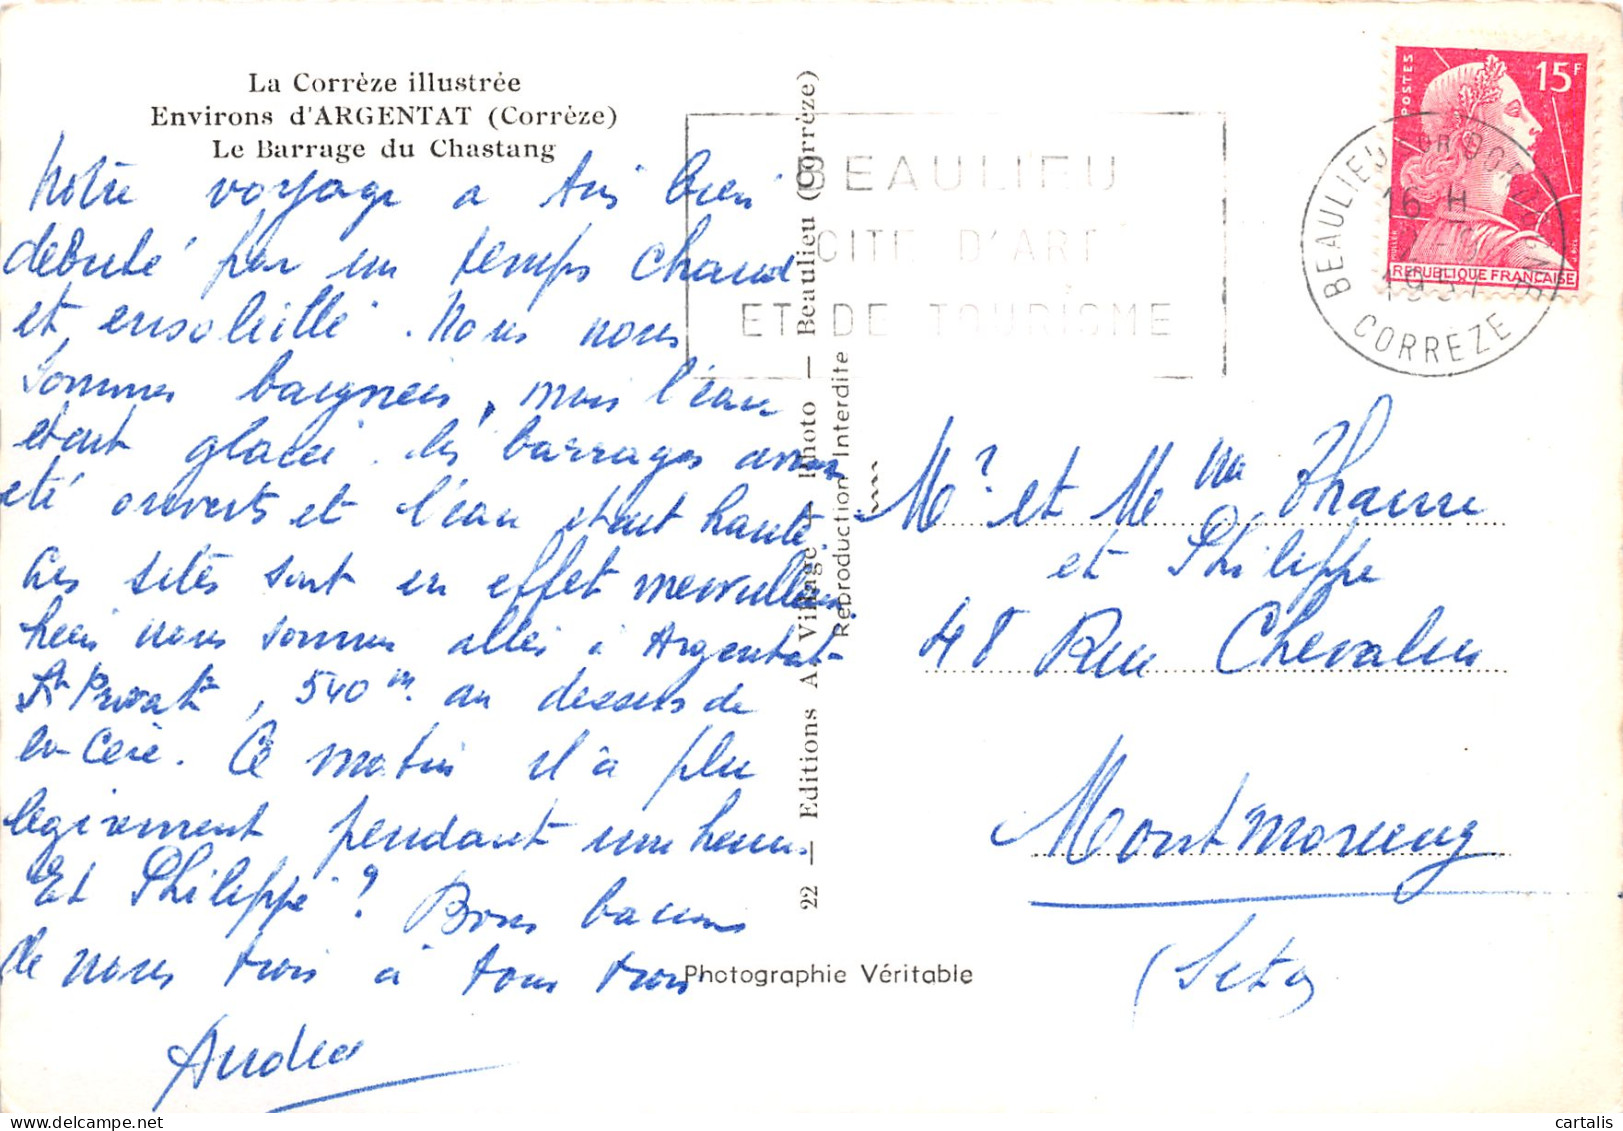 La Corrèze illustrée
Environs d'ARGENTAT (Corrèze)
Le Barrage du Chastang
Notre voyage a très bien
débuté par un temps chaud
et ensoleillé. Nous nous
sommes baignées, mais l'eau
était glacée. les barrages avaient
été ouverts et l'eau était haute.
Les sites sont en effet merveilleux.
hier nous sommes allés à Argentat
St Privat, 540 m. au dessus de
la Cère. Ce matin il a plu
légèrement pendant une heure.
Et Philippe? Bons
de nous trois à tous trois
Andrée
22 — Editions A Village — Photo — Beaulieu (Corrèze)
Reproduction Interdite
Photographie Véritable
BEAULIEU
CITE D'ART
ET DE TOURISME
POSTES
15F
REPUBLIQUE FRANÇAISE
BEAULIEU SUR DORDOGNE
16 H
1957
CORRÈZE
Mr et Mme
et Philippe
48 Rue Chevalier
Montmorency
(Set O)
cartalis